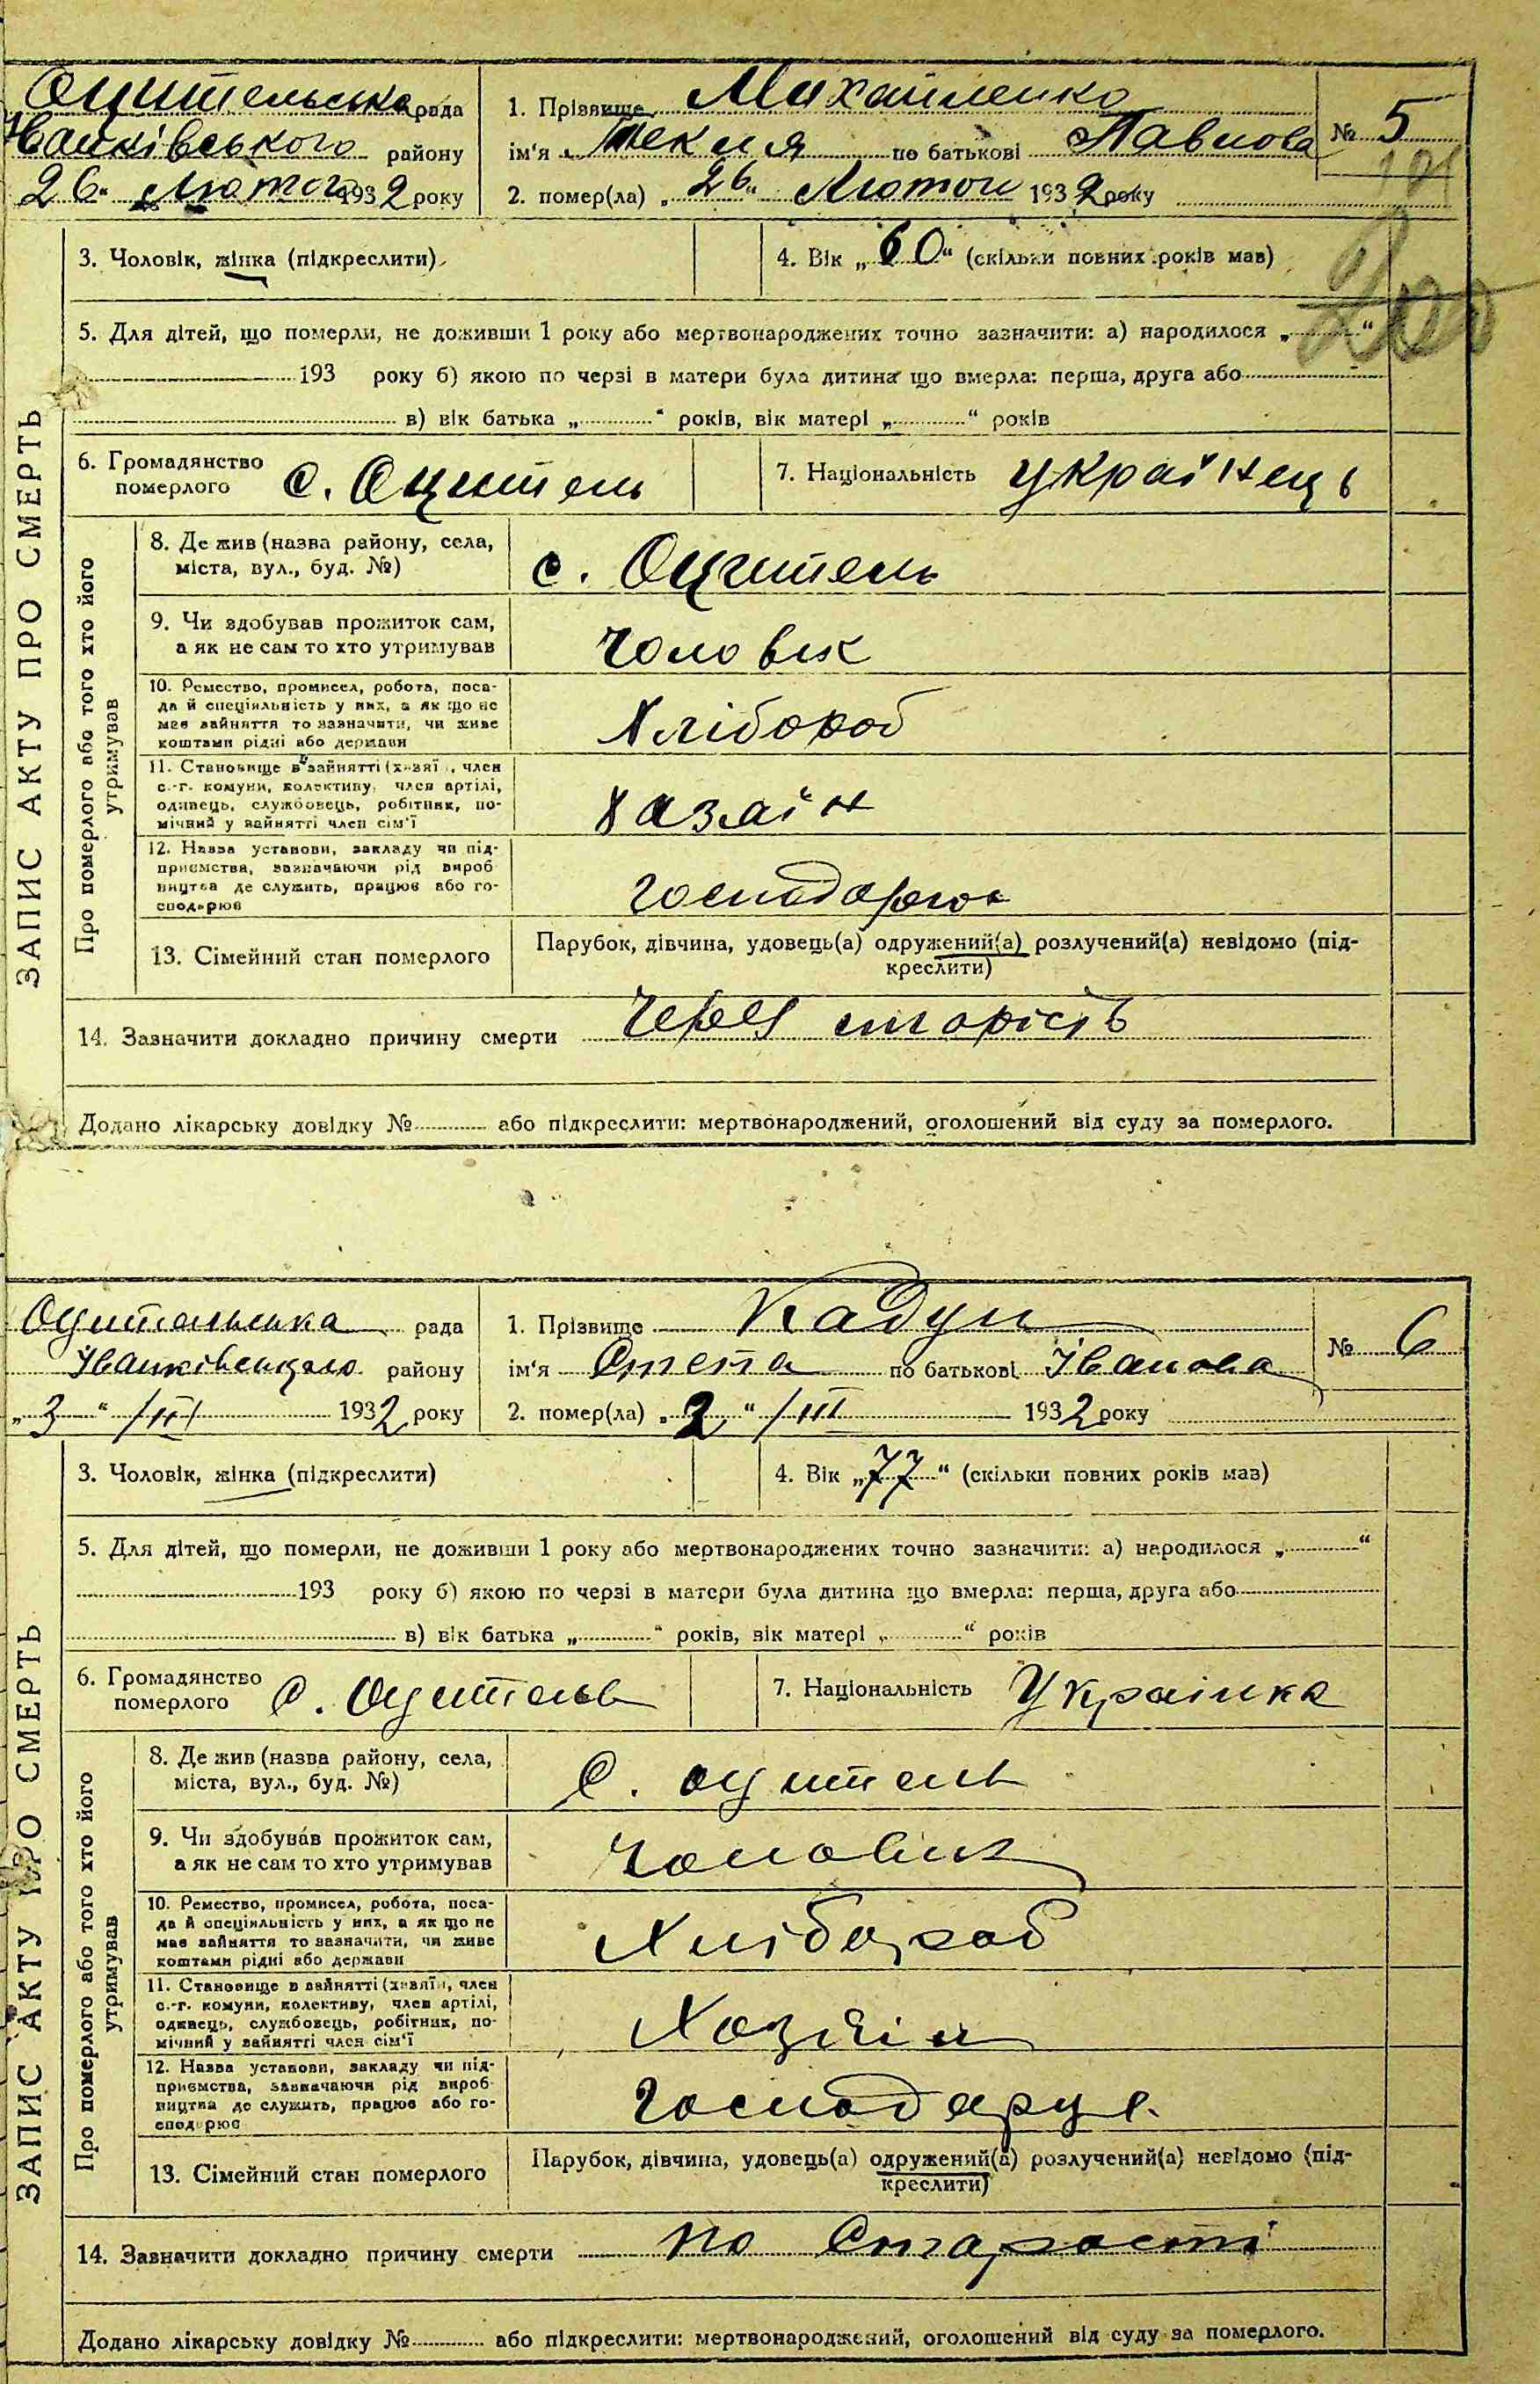 ЗАПИС АКТУ ПРО СМЕРТЬ
Оцительська рада
Іванківського району
„26“ Лютого 1932 року
1. Прізвище Михайленко
ім'я Текля по батькові Павлова
2. помер(ла) „26“ Лютого 1932 року
№ 5
200
3. Чоловік, жінка (підкреслити)
4. Вік „60“ (скільки повних років мав)
5. Для дітей, що померли, не доживши 1 року або мертвонароджених точно зазначити: а) народилося „ “
193 року б) якою по черзі в матери була дитина що вмерла: перша, друга або
в) вік батька „ “ років, вік матері „ “ років
6. Громадянство
померлого
с. Оцитель
7. Національність Українець
Про померлого або того хто його
утримував
8. Де жив (назва району, села,
міста, вул., буд. №)
с. Оцитель
9. Чи здобував прожиток сам,
а як не сам то хто утримував
Чоловік
10. Ремество, промисел, робота, поса-
да й специіяльність у них, а як що не
має зайняття то зазначити, чи живе
коштами рідні або держави
Хлібороб
11. Становище в зайнятті (хазяї , член
с.-г. комуни, колективу, член артілі,
одинець, службовець, робітник, по-
мічний у зайнятті член сім'ї
Хазяін
12. Назва установи, закладу чи під-
приємства, зазначаючи рід вироб
ництва де служить, працює або го-
сподарює
господарює
13. Сімейний стан померлого
Парубок, дівчина, удовець(а) одружений(а) розлучений(а) невідомо (під-
креслити)
14. Зазначити докладно причину смерти Через старість
Додано лікарську довідку № або підкреслити: мертвонароджений, оголошений від суду за померлого.
ЗАПИС АКТУ ПРО СМЕРТЬ
Оцитальська рада
Іванківського району
„3“ /III 1932 року
1. Прізвище Кадун
ім'я Степа по батькові Іванова
2. помер(ла) „2“ /III 1932 року
№ 6
3. Чоловік, жінка (підкреслити)
4. Вік „77“ (скільки повних років мав)
5. Для дітей, що померли, не доживши 1 року або мертвонароджених точно зазначити: а) народилося „ “
193 року б) якою по черзі в матери була дитина що вмерла: перша, друга або
в) вік батька „ “ років, вік матері „ “ років
6. Громадянство
померлого
С. Оцитель
7. Національність Українка
Про померлого або того хто його
утримував
8. Де жив (назва району, села,
міста, вул., буд. №)
С. оцитель
9. Чи здобував прожиток сам,
а як не сам то хто утримував
Чоловик
10. Ремество, промисел, робота, поса-
да й специіяльність у них, а як що не
має зайняття то зазначити, чи живе
коштами рідні або держави
Хлібороб
11. Становище в зайнятті (хазяї , член
с.-г. комуни, колективу, член артілі,
одинець, службовець, робітник, по-
мічний у зайнятті член сім'ї
Хозяін
12. Назва установи, закладу чи під-
приємства, зазначаючи рід вироб
ництва де служить, працює або го-
сподарює
Господарує
13. Сімейний стан померлого
Парубок, дівчина, удовець(а) одружений(а) розлучений(а) невідомо (під-
креслити)
14. Зазначити докладно причину смерти по Старості
Додано лікарську довідку № або підкреслити: мертвонароджений, оголошений від суду за померлого.